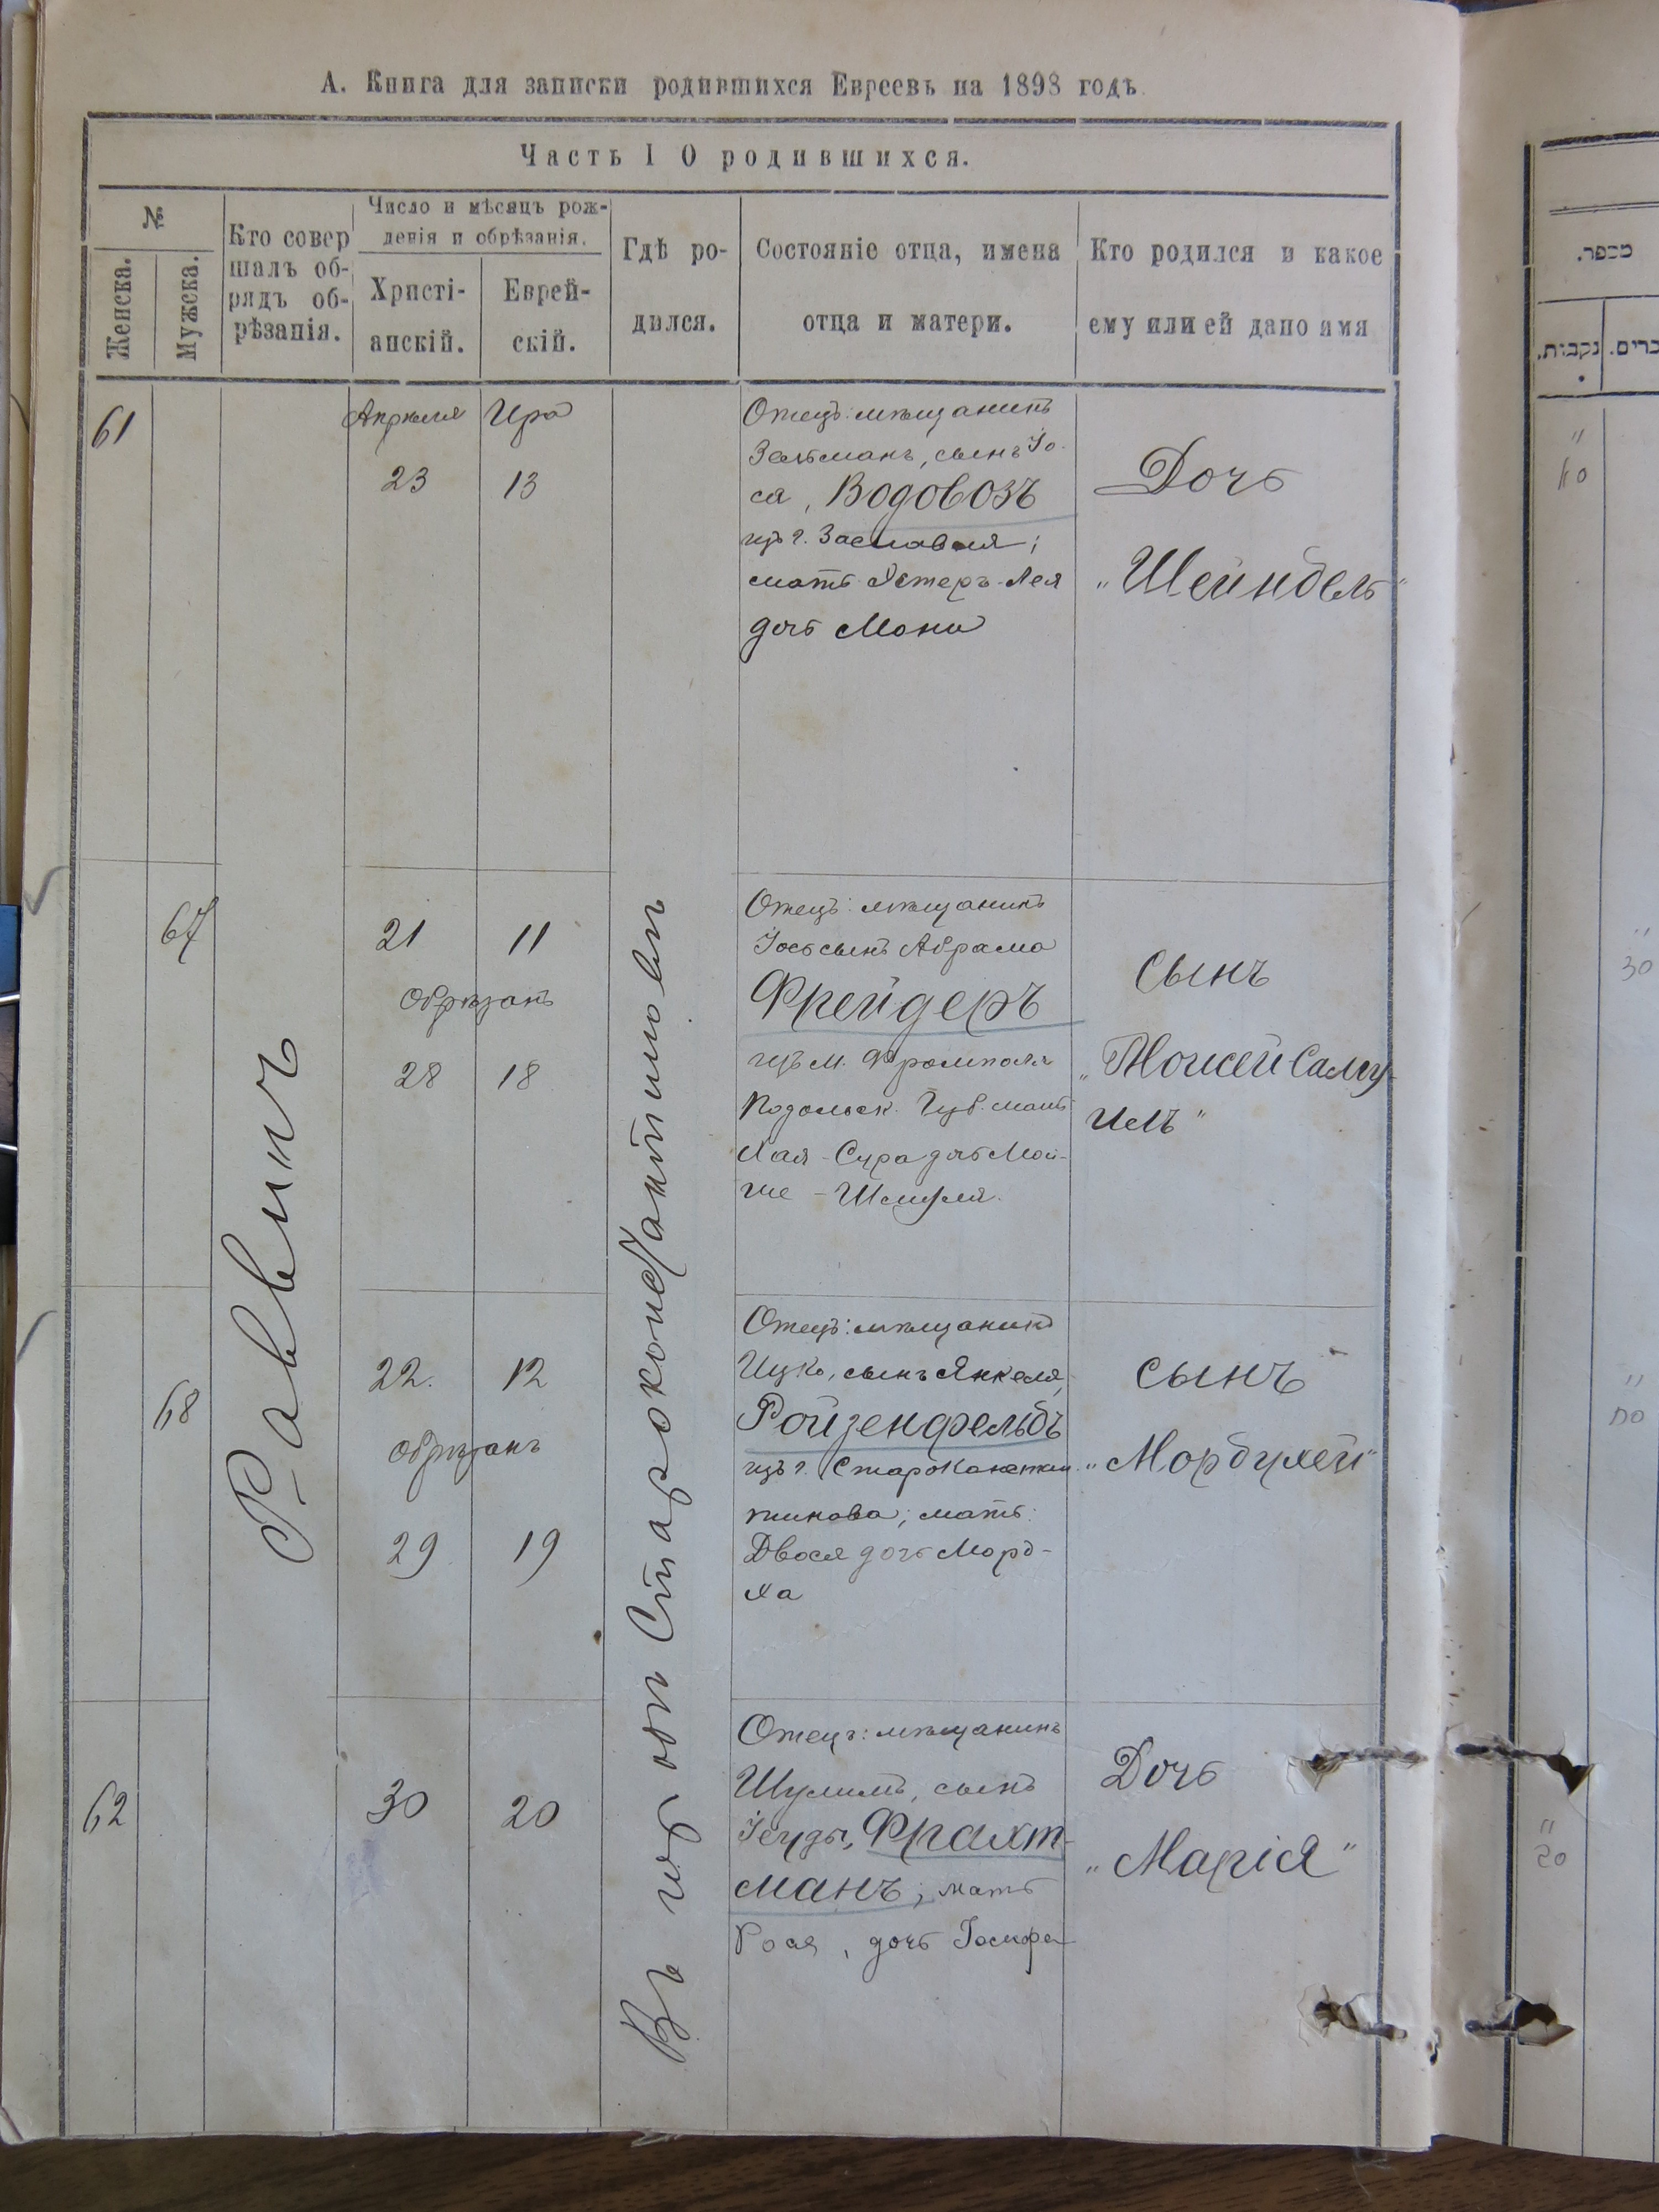 А. Книга для записки родившихся Евреевъ на 1898 годъ
Часть I О родившихся.
№
Женска.
Мужска.
Кто совер
шалъ об-
рядъ об-
рѣзанія.
Число и мѣсяцъ рож-
денія и обрѣзанія.
Христі-
анскій.
Еврей-
скій.
Гдѣ ро-
дился.
Состояніе отца, имена
отца и матери.
Кто родился и какое
ему или ей дано имя
Раввинъ
Въ городѣ Староконстантиновѣ
61
Апрѣля
Ира
23
13
Отецъ: мѣщанинъ
Зельманъ, сынъ Іо-
са, Водовозъ
изъ г. Заславля;
мать Эстеръ-Лея
дочь Мони
Дочь
„Шейндель“
67
21
11
обрѣзанъ
28
18
Отецъ: мѣщанинъ
Іось сынъ Абрама
Фрейдеръ
изъ м. Фрамполя
Подольск. Губ. мать
Хая-Сура дочь Мой-
ше-Шмуля.
Сынъ
„Моисей Саму-
илъ“
68
22.
12
обрѣзанъ
29
19
Отецъ: мѣщанинъ
Ицко, сынъ Янкеля,
Ройзенфельдъ
изъ г. Староконстан-
тинова; мать:
Двося дочь Морд-
ха
сынъ
„Мордухей“
62
30
20
Отецъ: мѣщанинъ
Шулимъ, сынъ
Іеуды, Фрахт-
манъ; мать
Рося, дочь Іосифа
Дочь
„Марія“
מספר.
נקבות.
"
"
30
"
"